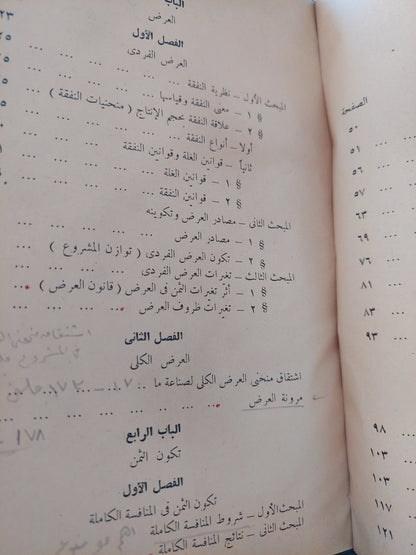 الباب
العرض
٢٣
الفصل الأول
٢٥
العرض الفردى
المبحث الأول – نظرية النفقة ... ...
§ ١ – معنى النفقة وقياسها ... ... ...
§ ٢ – علاقة النفقة بحجم الإنتاج ( منحنيات النفقة )
أولا – أنواع النفقة ... ... ...
ثانياً – قوانين الغلة وقوانين النفقة
§ ١ – قوانين الغلة ... ... ...
§ ٢ – قوانين النفقة ... ... ...
المبحث الثانى – مصادر العرض وتكوينه
§ ١ – مصادر العرض ... ... ...
§ ٢ – تكون العرض الفردى ( توازن المشروع )
المبحث الثالث – تغيرات العرض الفردى ... ...
§ ١ – أثر تغيرات الثمن فى العرض ( قانون العرض )
§ ٢ – تغيرات ظروف العرض ... ...
الفصل الثانى
العرض الكلى
اشتقاق منحنى العرض الكلى لصناعة ما ...
مرونة العرض ... ... ...
١٧٨
الباب الرابع
تكون الثمن
الفصل الأول
تكون الثمن فى المنافسة الكاملة
المبحث الأول – شروط المنافسة الكاملة
المبحث الثانى – نتائج المنافسة الكاملة
الصفحة
٥٠
٥١
٥٦
٥٧
٦٣
٦٩
٧٦
٨١
٨٣
٩٣
٩٨
١٠٣
١٠٣
١١٧
١٢١